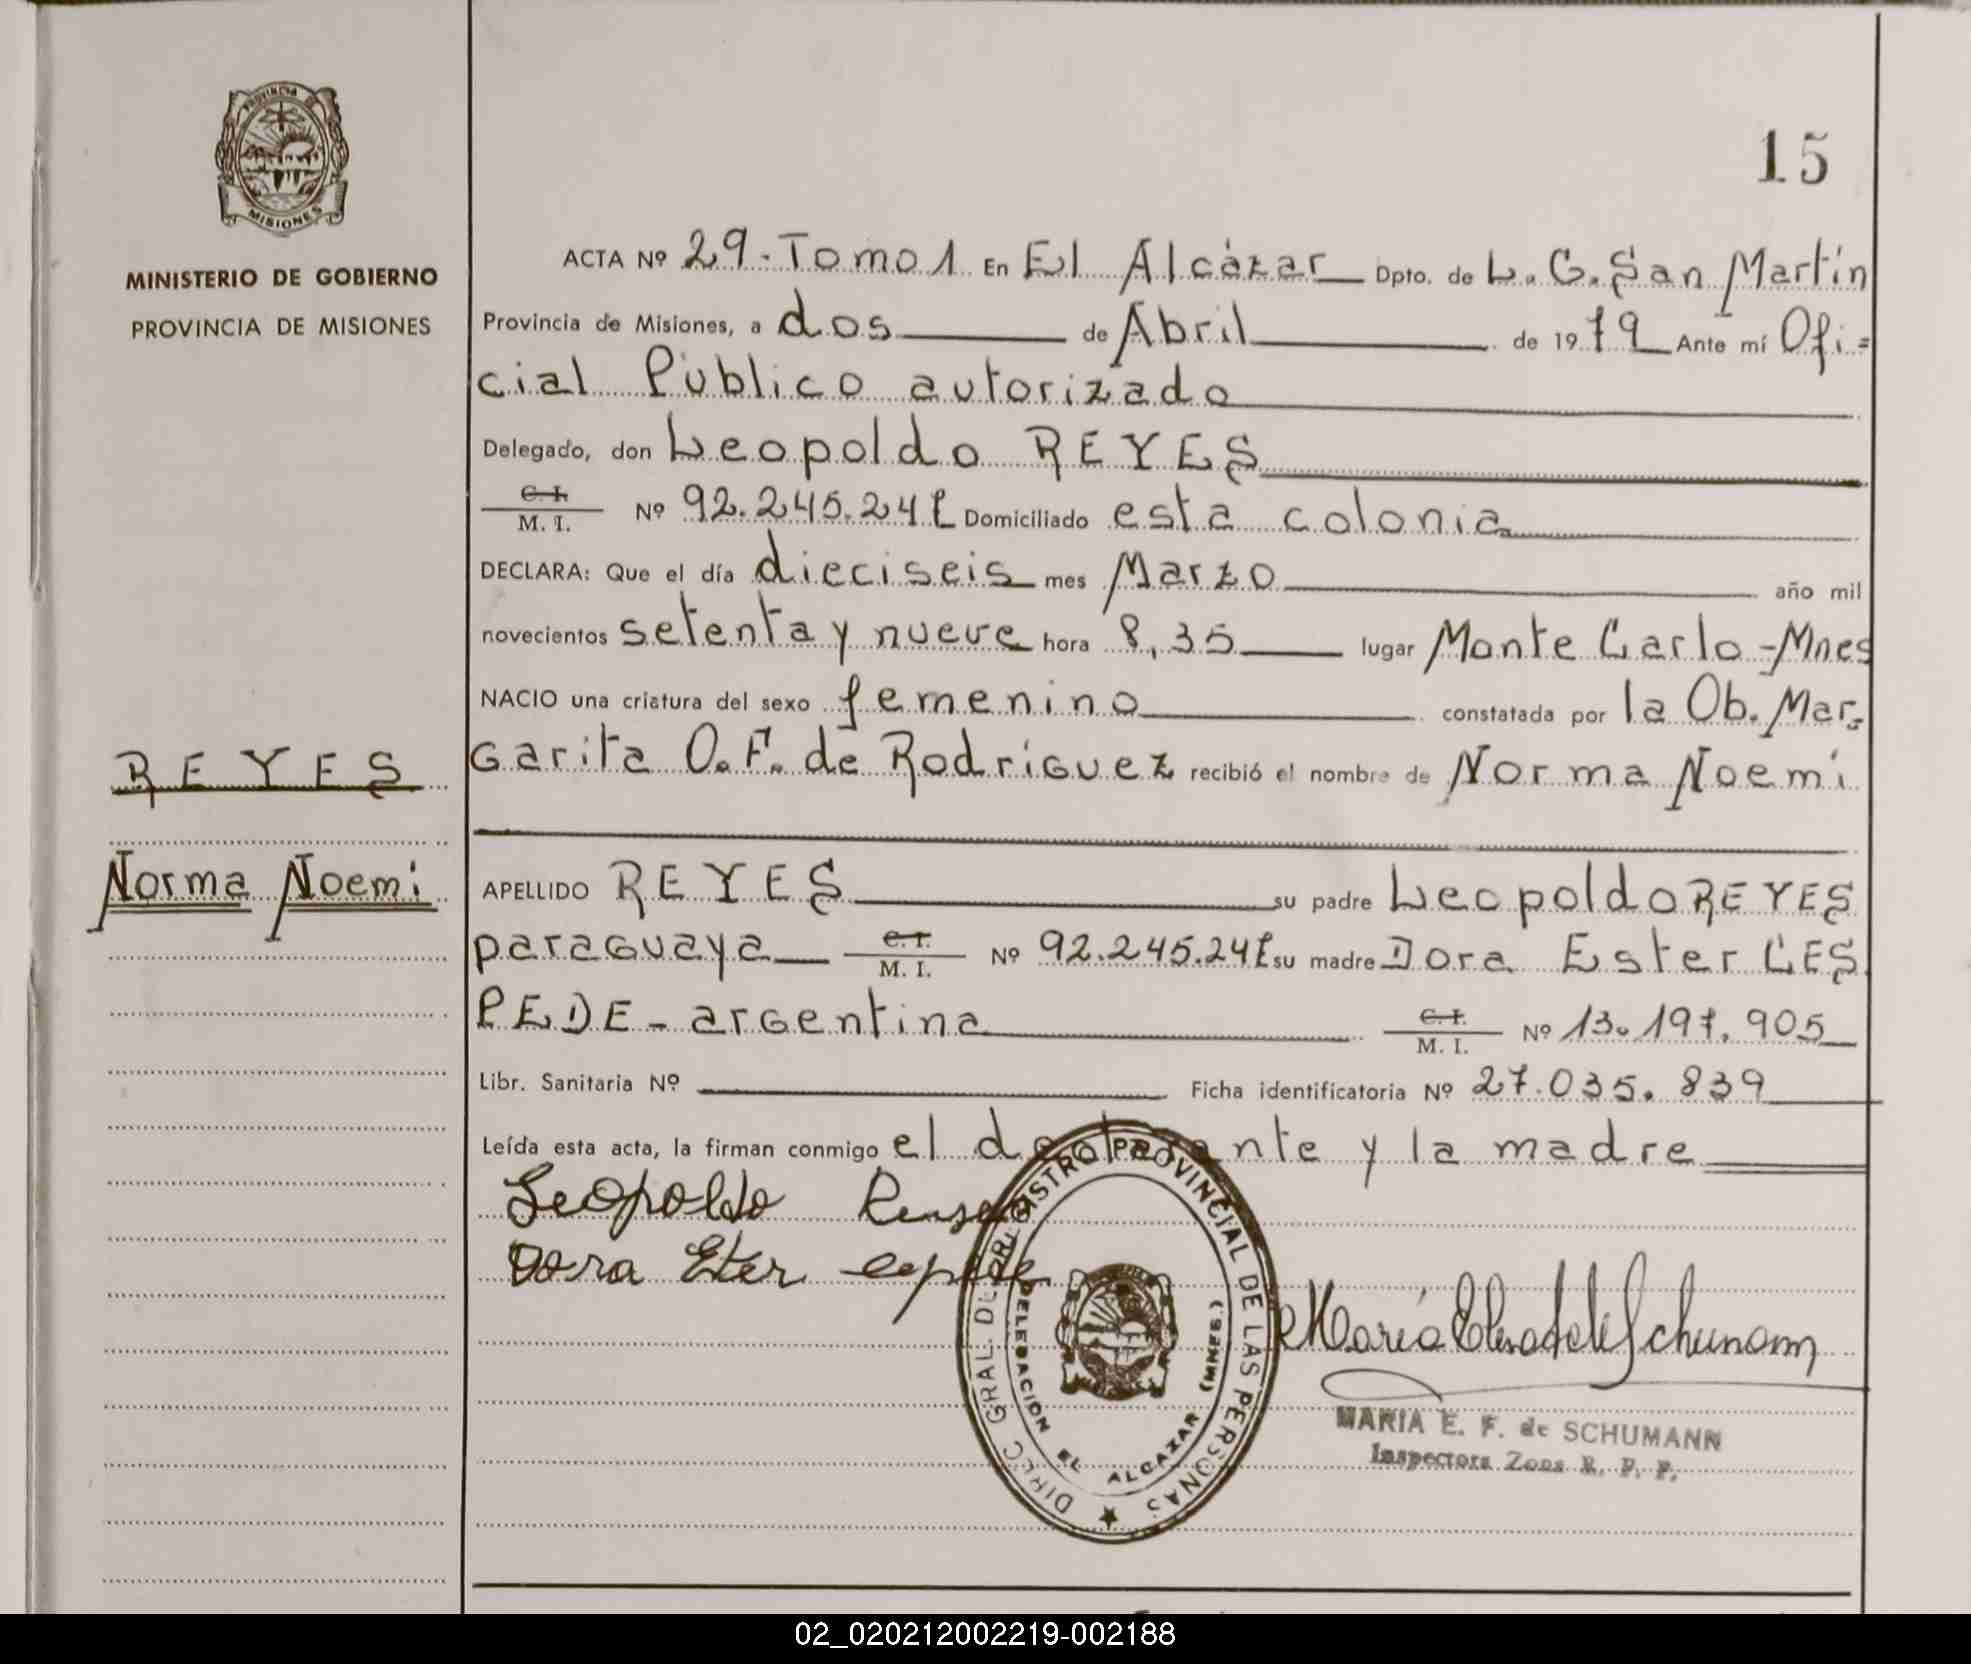 PROVINCIA DE
MISIONES
MINISTERIO DE GOBIERNO
PROVINCIA DE MISIONES
REYES
Norma Noemi
15
ACTA Nº 29-Tomo 1 En El Alcázar Dpto. de L. G. San Martín
Provincia de Misiones, a dos de Abril de 1979 Ante mí Ofi=
cial Público autorizado
Delegado, don Leopoldo REYES
C. I. M. I. Nº 92.245.24 Domiciliado esta colonia
DECLARA: Que el día dieciseis mes Marzo año mil
novecientos setenta y nueve hora 8,35 lugar Monte Carlo-Mnes
NACIO una criatura del sexo femenino constatada por la Ob. Mar-
garita O. F. de Rodríguez recibió el nombre de Norma Noemi
APELLIDO REYES su padre Leopoldo REYES
paraguaya C. I. M. I. Nº 92.245.24 su madre Dora Ester CES
PEDE - argentina C. I. M. I. Nº 13.197.905
Libr. Sanitaria Nº Ficha identificatoria Nº 27.035.839
Leída esta acta, la firman conmigo el declarante y la madre
Leopoldo
Dora Eter
DIREC. GRAL. DEL REGISTRO PROVINCIAL DE LAS PERSONAS
DELEGACION EL ALCAZAR (MNES.)
Maria Elena de Schumann
MARIA E. F. de SCHUMANN
Inspectora Zona R. P. P.
02_020212002219-002188